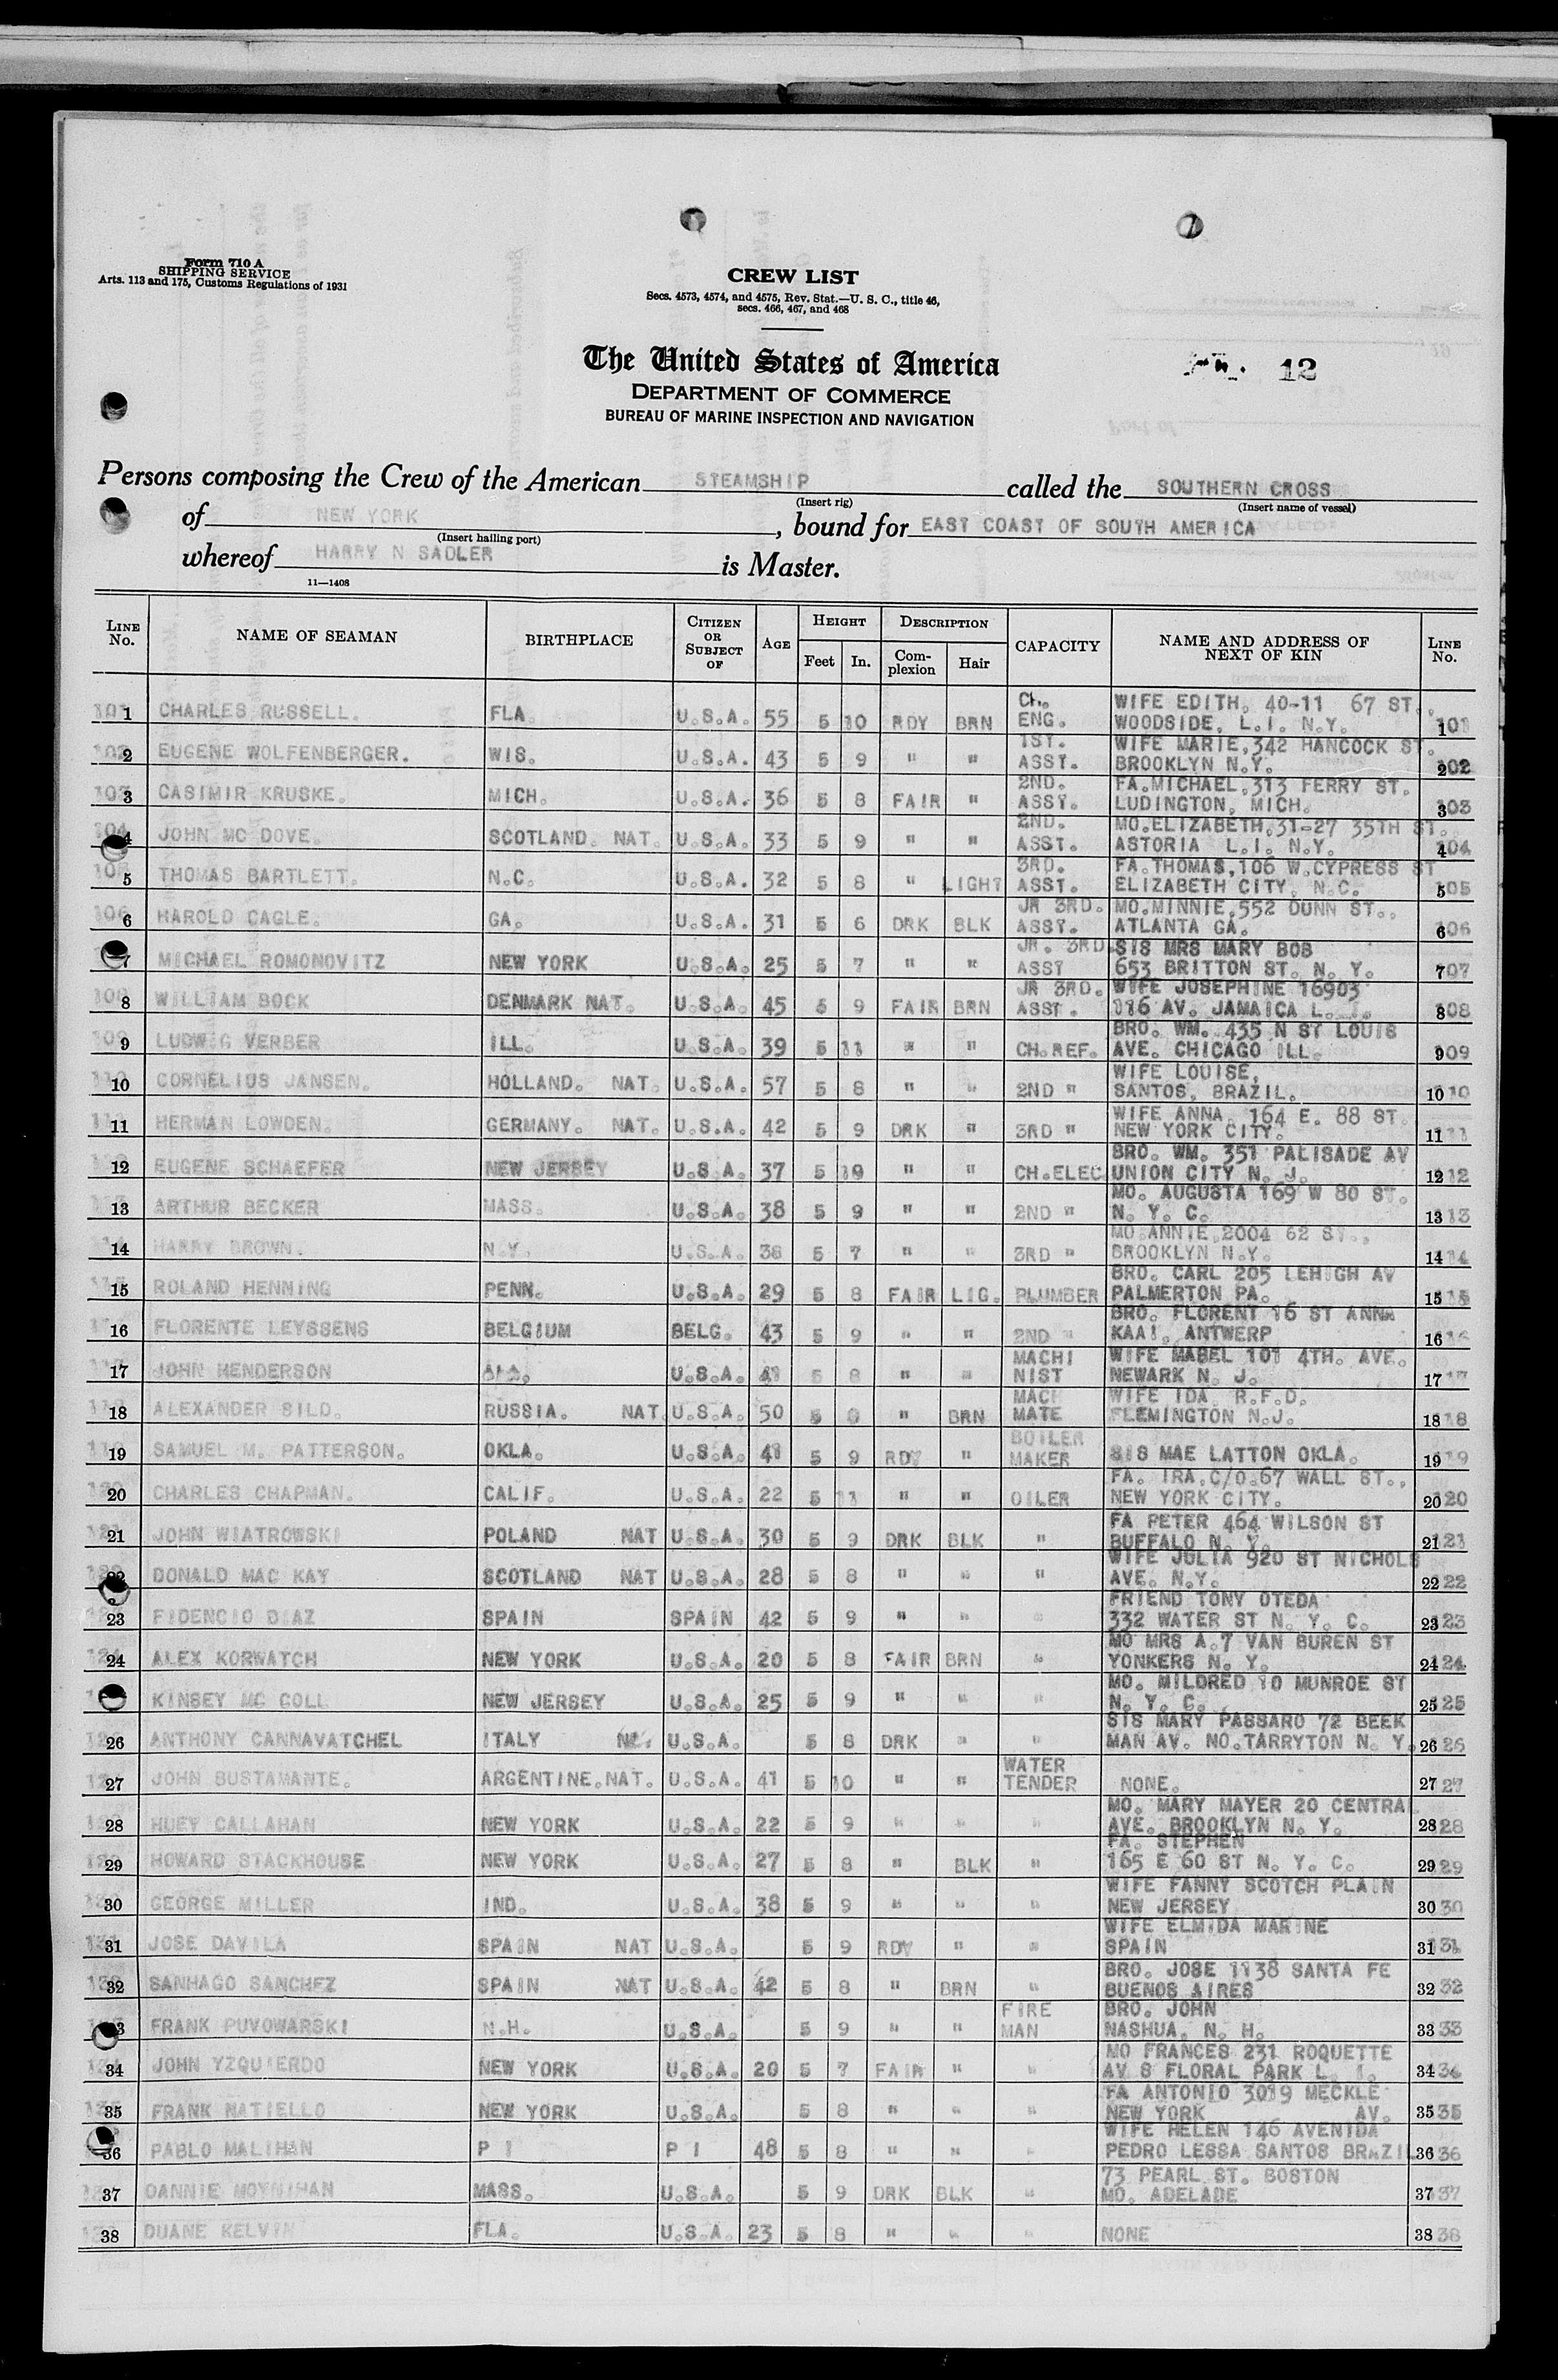 Form 710 A
SHIPPING SERVICE
Arts. 113 and 175, Customs Regulations of 1931
CREW LIST
Secs. 4573, 4574, and 4575, Rev. Stat.—U. S. C., title 46,
secs. 466, 467, and 468
The United States of America
DEPARTMENT OF COMMERCE
BUREAU OF MARINE INSPECTION AND NAVIGATION
12
Persons composing the Crew of the American STEAMSHIP called the SOUTHERN CROSS
(Insert rig) (Insert name of vessel)
of NEW YORK, bound for EAST COAST OF SOUTH AMERICA
(Insert hailing port)
whereof HARRY N SADLER is Master.
11—1408
LINE No. NAME OF SEAMAN BIRTHPLACE CITIZEN OR SUBJECT OF AGE HEIGHT Feet In. DESCRIPTION Complexion Hair CAPACITY NAME AND ADDRESS OF NEXT OF KIN LINE No.
1 CHARLES RUSSELL. FLA. U.S.A. 55 5 10 RDY BRN CH. ENG. WIFE EDITH, 40-11 67 ST., WOODSIDE, L.I. N.Y. 1 101
2 EUGENE WOLFENBERGER. WIS. U.S.A. 43 5 9 " " 1ST. ASST. WIFE MARIE, 342 HANCOCK ST. BROOKLYN N.Y. 2 102
3 CASIMIR KRUSKE. MICH. U.S.A. 36 5 8 FAIR " 2ND. ASST. FA. MICHAEL, 313 FERRY ST. LUDINGTON, MICH. 3 103
4 JOHN MC DOVE. SCOTLAND. NAT. U.S.A. 33 5 9 " " 2ND. ASST. MO. ELIZABETH, 31-27 35TH ST. ASTORIA L.I. N.Y. 4 104
5 THOMAS BARTLETT. N.C. U.S.A. 32 5 8 " LIGHT 3RD. ASST. FA. THOMAS, 106 W. CYPRESS ST ELIZABETH CITY, N.C. 5 105
6 HAROLD CAGLE. GA. U.S.A. 31 5 6 DRK BLK JR 3RD. ASST. MO. MINNIE, 552 DUNN ST., ATLANTA GA. 6 106
7 MICHAEL ROMONOVITZ NEW YORK U.S.A. 25 5 7 " " JR. 3RD. ASST SIS MRS MARY BOB 653 BRITTON ST. N. Y. 7 107
8 WILLIAM BOCK DENMARK NAT. U.S.A. 45 5 9 FAIR BRN JR 3RD. ASST. WIFE JOSEPHINE 16903 116 AV. JAMAICA L. I. 8 108
9 LUDWIG VERBER ILL. U.S.A. 39 5 11 " " CH. REF. BRO. WM. 435 N ST LOUIS AVE. CHICAGO ILL. 9 109
10 CORNELIUS JANSEN. HOLLAND. NAT. U.S.A. 57 5 8 " " 2ND " WIFE LOUISE, SANTOS, BRAZIL. 10 110
11 HERMAN LOWDEN. GERMANY. NAT. U.S.A. 42 5 9 DRK " 3RD " WIFE ANNA, 164 E. 88 ST. NEW YORK CITY. 11 111
12 EUGENE SCHAEFER NEW JERSEY U.S.A. 37 5 " " CH. ELEC BRO. WM. 351 PALISADE AV UNION CITY N. J. 12 112
13 ARTHUR BECKER MASS. U.S.A. 38 5 9 " " 2ND " MO. AUGUSTA 169 W 80 ST. N. Y. C. 13 113
14 HARRY BROWN. N.Y. U.S.A. 38 5 7 " " 3RD " MO. ANNIE, 2004 62 ST., BROOKLYN N.Y. 14 114
15 ROLAND HENNING PENN. U.S.A. 29 5 8 FAIR LIG. PLUMBER BRO. CARL 205 LEHIGH AV PALMERTON PA. 15 115
16 FLORENTE LEYSSENS BELGIUM BELG. 43 5 9 " " 2ND " BRO. FLORENT 16 ST ANNA KAAI, ANTWERP 16 116
17 JOHN HENDERSON U.S.A. 5 8 " " MACHI NIST WIFE MABEL 101 4TH. AVE. NEWARK N. J. 17 117
18 ALEXANDER SILD. RUSSIA. NAT. U.S.A. 50 5 " BRN MACH MATE WIFE IDA R.F.D. FLEMINGTON N.J. 18 118
19 SAMUEL M. PATTERSON. OKLA. U.S.A. 41 5 9 RDY " BOILER MAKER SIS MAE LATTON OKLA. 19 119
20 CHARLES CHAPMAN. CALIF. U.S.A. 22 5 11 " " OILER FA. IRA, C/O 67 WALL ST., NEW YORK CITY. 20 120
21 JOHN WIATROWSKI POLAND NAT U.S.A. 30 5 9 DRK BLK " FA PETER 464 WILSON ST BUFFALO N. Y. 21 121
22 DONALD MAC KAY SCOTLAND NAT U.S.A. 28 5 8 " " " WIFE JULIA 920 ST NICHOLS AVE. N.Y. 22 122
23 FIDENCIO DIAZ SPAIN SPAIN 42 5 9 " " " FRIEND TONY OTEDA 332 WATER ST N. Y. C. 23 123
24 ALEX KORWATCH NEW YORK U.S.A. 20 5 8 FAIR BRN " MO MRS A. 7 VAN BUREN ST YONKERS N. Y. 24 124
KINSEY MC COLL NEW JERSEY U.S.A. 25 5 9 " " " MO. MILDRED 10 MUNROE ST N. Y. C. 25 125
26 ANTHONY CANNAVATCHEL ITALY U.S.A. 5 8 DRK " " SIS MARY PASSARO 72 BEEK MAN AV. NO. TARRYTON N. Y. 26 126
27 JOHN BUSTAMANTE. ARGENTINE. NAT. U.S.A. 41 5 10 " " WATER TENDER NONE. 27 27
28 HUEY CALLAHAN NEW YORK U.S.A. 22 5 9 " " " MO. MARY MAYER 20 CENTRAL AVE. BROOKLYN N. Y. 28 28
29 HOWARD STACKHOUSE NEW YORK U.S.A. 27 5 8 " BLK " FA. STEPHEN 165 E 60 ST N. Y. C. 29 29
30 GEORGE MILLER IND. U.S.A. 38 5 9 " " " WIFE FANNY SCOTCH PLAIN NEW JERSEY 30 30
31 JOSE DAVILA SPAIN NAT U.S.A. 5 9 RDY " " WIFE ELMIDA MARINE SPAIN 31 31
32 SANHAGO SANCHEZ SPAIN NAT U.S.A. 42 5 8 " BRN " BRO. JOSE 1138 SANTA FE BUENOS AIRES 32 32
33 FRANK PUVOWARSKI N.H. U.S.A. 5 9 " " FIRE MAN BRO. JOHN NASHUA, N. H. 33 33
34 JOHN YZQUIERDO NEW YORK U.S.A. 20 5 7 FAIR " " MO FRANCES 231 ROQUETTE AV S FLORAL PARK L. I. 34 34
35 FRANK NATIELLO NEW YORK U.S.A. 5 8 " " " FA ANTONIO 3019 MECKLE AV. NEW YORK 35 35
36 PABLO MALIHAN P I P I 48 5 8 " " " WIFE HELEN 146 AVENIDA PEDRO LESSA SANTOS BRAZIL 36 36
37 DANNIE MOYNIHAN MASS. U.S.A. 5 9 DRK BLK " 73 PEARL ST. BOSTON MO. ADELADE 37 37
38 DUANE KELVIN FLA. U.S.A. 23 5 8 " " " NONE 38 38